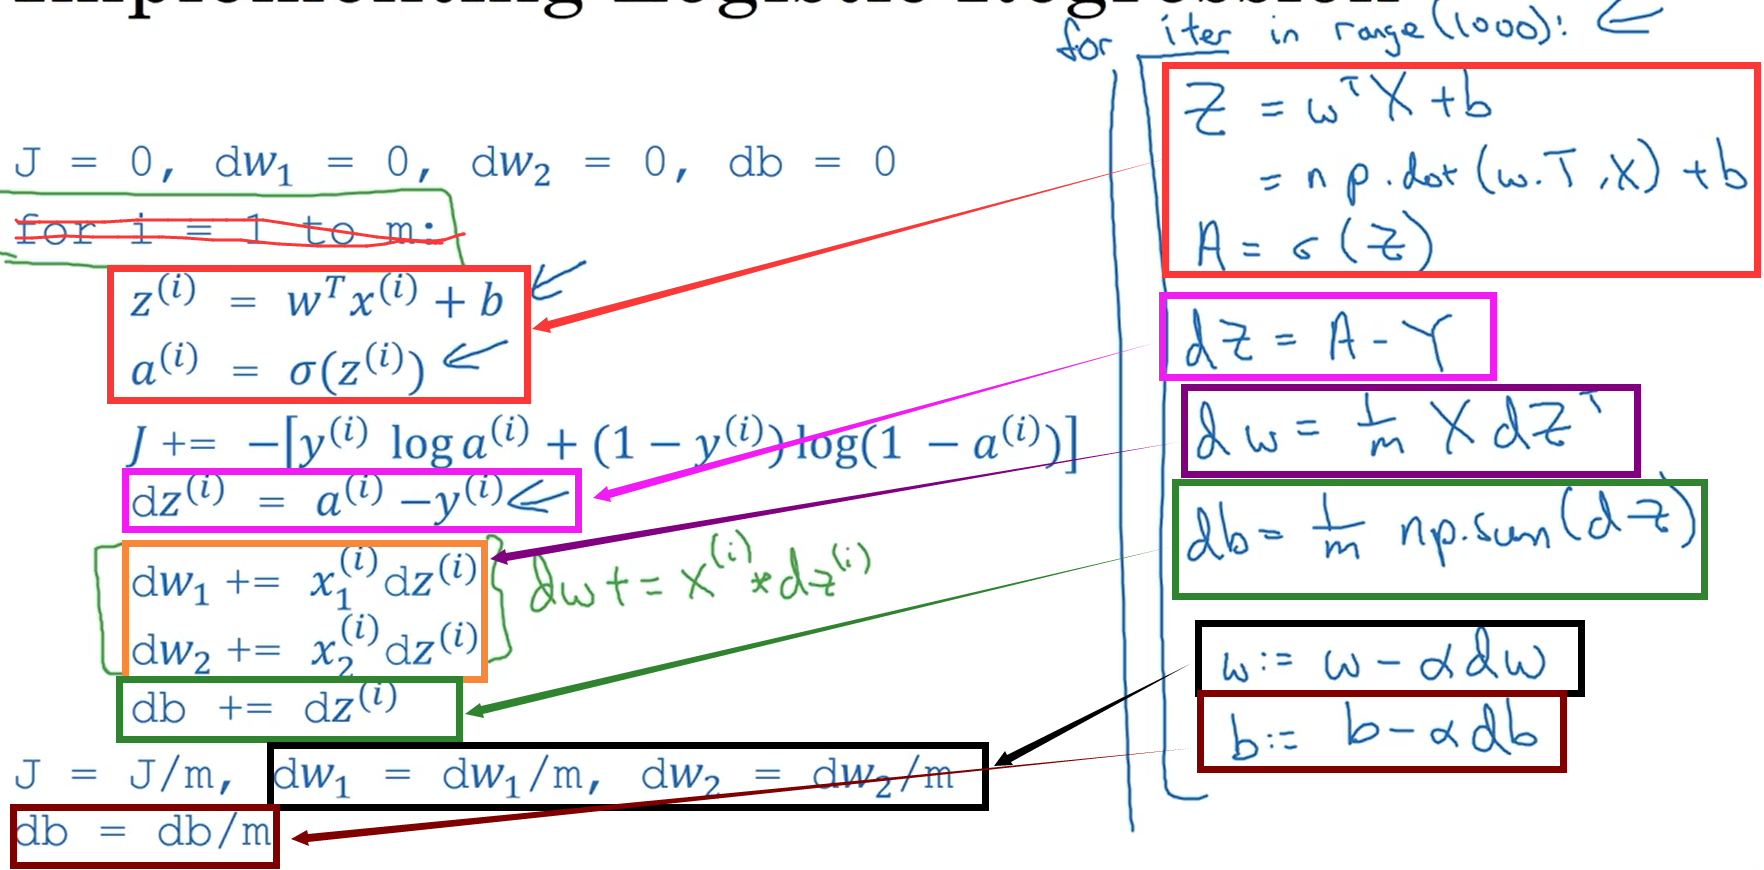 Implementing Logistic Regression
J = 0, dw₁ = 0, dw₂ = 0, db = 0
for i = 1 to m:
z⁽ⁱ⁾ = wᵀx⁽ⁱ⁾ + b
a⁽ⁱ⁾ = σ(z⁽ⁱ⁾)
J += −[y⁽ⁱ⁾ log a⁽ⁱ⁾ + (1 − y⁽ⁱ⁾) log(1 − a⁽ⁱ⁾)]
dz⁽ⁱ⁾ = a⁽ⁱ⁾ − y⁽ⁱ⁾
dw₁ += x₁⁽ⁱ⁾dz⁽ⁱ⁾
dw₂ += x₂⁽ⁱ⁾dz⁽ⁱ⁾
dw += x⁽ⁱ⁾ * dz⁽ⁱ⁾
db += dz⁽ⁱ⁾
J = J/m, dw₁ = dw₁/m, dw₂ = dw₂/m
db = db/m
for iter in range(1000):
Z = wᵀX + b
= np.dot(w.T,X) + b
A = σ(Z)
dZ = A - Y
dw = 1/m X dZᵀ
db = 1/m np.sum(dZ)
w := w - αdw
b := b - αdb